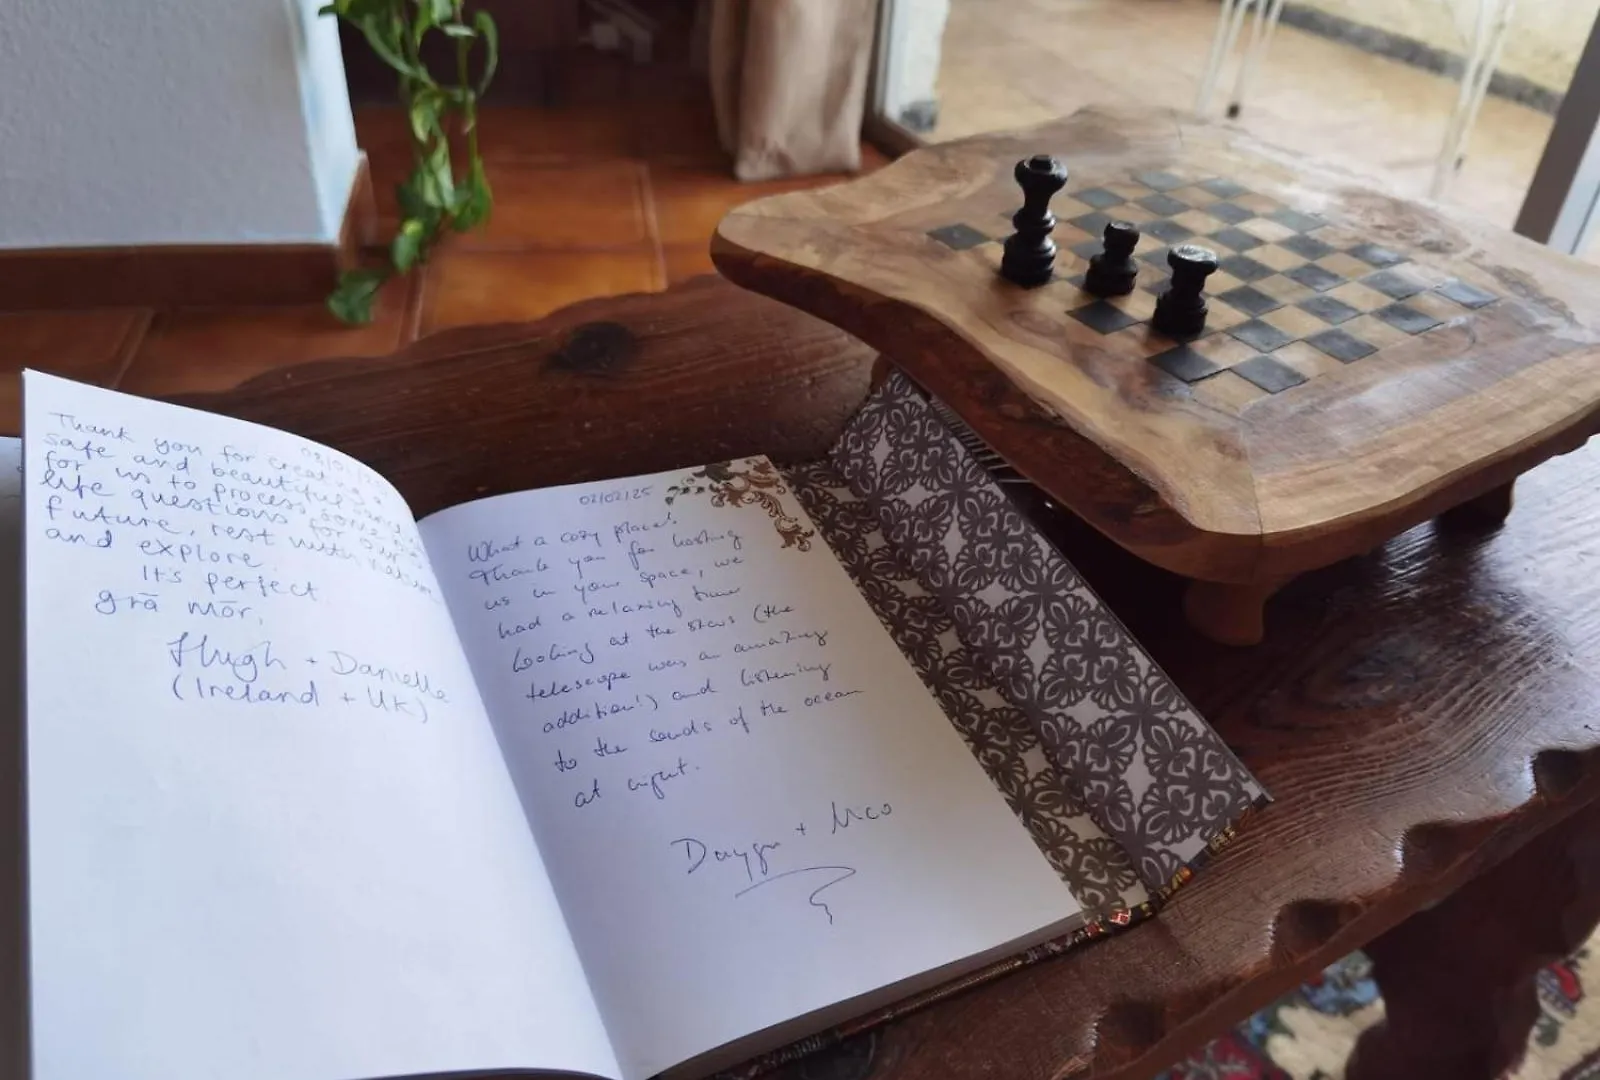 Thank you for creating a
safe and beautiful space
for us to process some big
life questions for our
future, rest with nature
and explore.
It's perfect.
grá mór,
Hugh + Danielle
(Ireland + UK)
02/02/25
What a cozy place!
Thank you for hosting
us in your space, we
had a relaxing time
looking at the stars (the
telescope was an amazing
addition!) and listening
to the sounds of the ocean
at night.
+ Nico